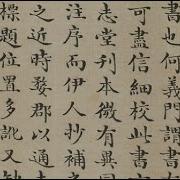 書也何義門
可盡信細校此書
志堂刊本微有異同
注序而伊人抄補之
之近時婺郡以通
標題位置多訛又